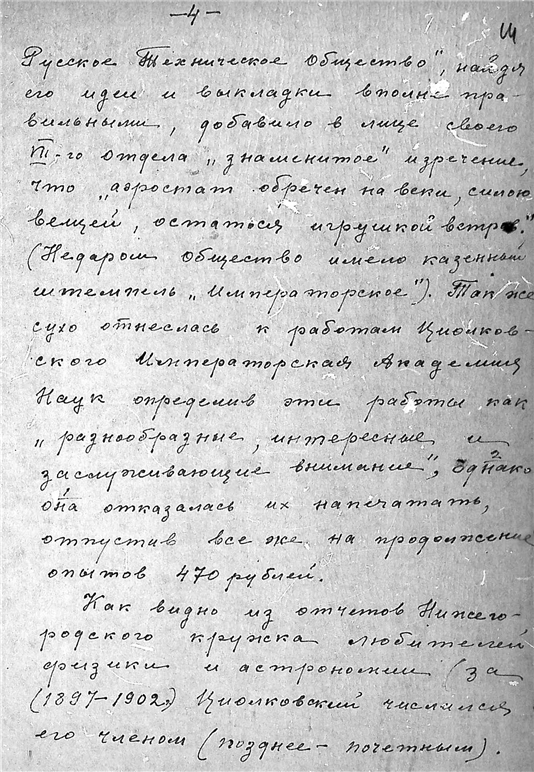 —4—
Русское Техническое Общество", найдя
его идеи и выкладки вполне пра-
вильными, добавило в лице своего
VII-го отдела „знаменитое" изречение,
что „аэростат обречен навеки, силою
вещей, остаться игрушкой ветров."
(Недаром общество имело казенный
штемпель „Императорское"). Так же
сухо отнеслась к работам Циолков-
ского Императорская Академия
Наук определив эти работы как
„разнообразные, интересные и
заслуживающие внимание", однако
она отказалась их напечатать,
отпустив все же на продолжение
опытов 470 рублей.
Как видно из отчетов Нижего-
родского кружка любителей
физики и астрономии (за
(1897-1902) Циолковский числился
его членом (позднее - почетным).